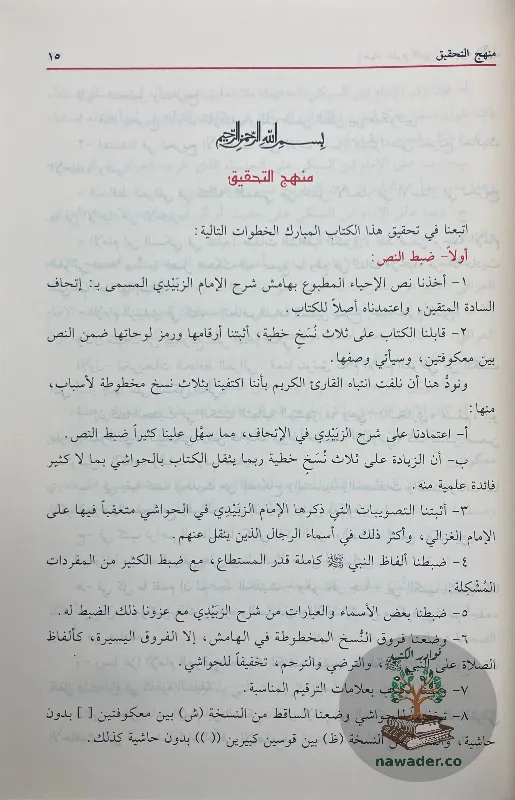 منهج التحقيق
١٥
بسم الله الرحمن الرحيم
منهج التحقيق
اتبعنا في تحقيق هذا الكتاب المبارك الخطوات التالية:
أولاً- ضبط النص:
١- أخذنا نص الإحياء المطبوع بهامش شرح الإمام الزَبِيْدي المسمى بـ: إتحاف
السادة المتقين، واعتمدناه أصلاً للكتاب.
٢- قابلنا الكتاب على ثلاث نُسَخٍ خطية، أثبتنا أرقامها ورمز لوحاتها ضمن النص
بين معكوفتين، وسيأتي وصفها.
ونودُّ هنا أن نلفت انتباه القارئ الكريم بأننا اكتفينا بثلاث نسخ مخطوطة لأسباب،
منها:
أ- اعتمادنا على شرح الزبيدي في الإتحاف، مما سهَّل علينا كثيراً ضبط النص.
ب- أن الزيادة على ثلاث نُسَخٍ خطية ربما يثقل الكتاب بالحواشي بما لا كثير
فائدة علمية منه.
٣- أثبتنا التصويبات التي ذكرها الإمام الزبيدي في الحواشي متعقباً فيها على
الإمام الغزالي، وأكثر ذلك في أسماء الرجال الذين ينقل عنهم.
٤- ضبطنا ألفاظ النبي ﷺ كاملة قدر المستطاع، مع ضبط الكثير من المفردات
المُشْكِلة.
٥- ضبطنا بعض الأسماء والعبارات من شرح الزبيدي مع عزونا ذلك الضبط له.
٦- وضعنا فروق النُّسخ المخطوطة في الهامش، إلا الفروق اليسيرة، كألفاظ
الصلاة على النبي ﷺ، والترضي والترحم، تخفيفاً للحواشي.
٧- بعلامات الترقيم المناسبة.
٨- للحواشي وضعنا الساقط من النسخة (ش) بين معكوفتين [ ] بدون
حاشية، النسخة (ظ) بين قوسين كبيرين (( )) بدون حاشية كذلك.
نوادر الكتب
nawader.co